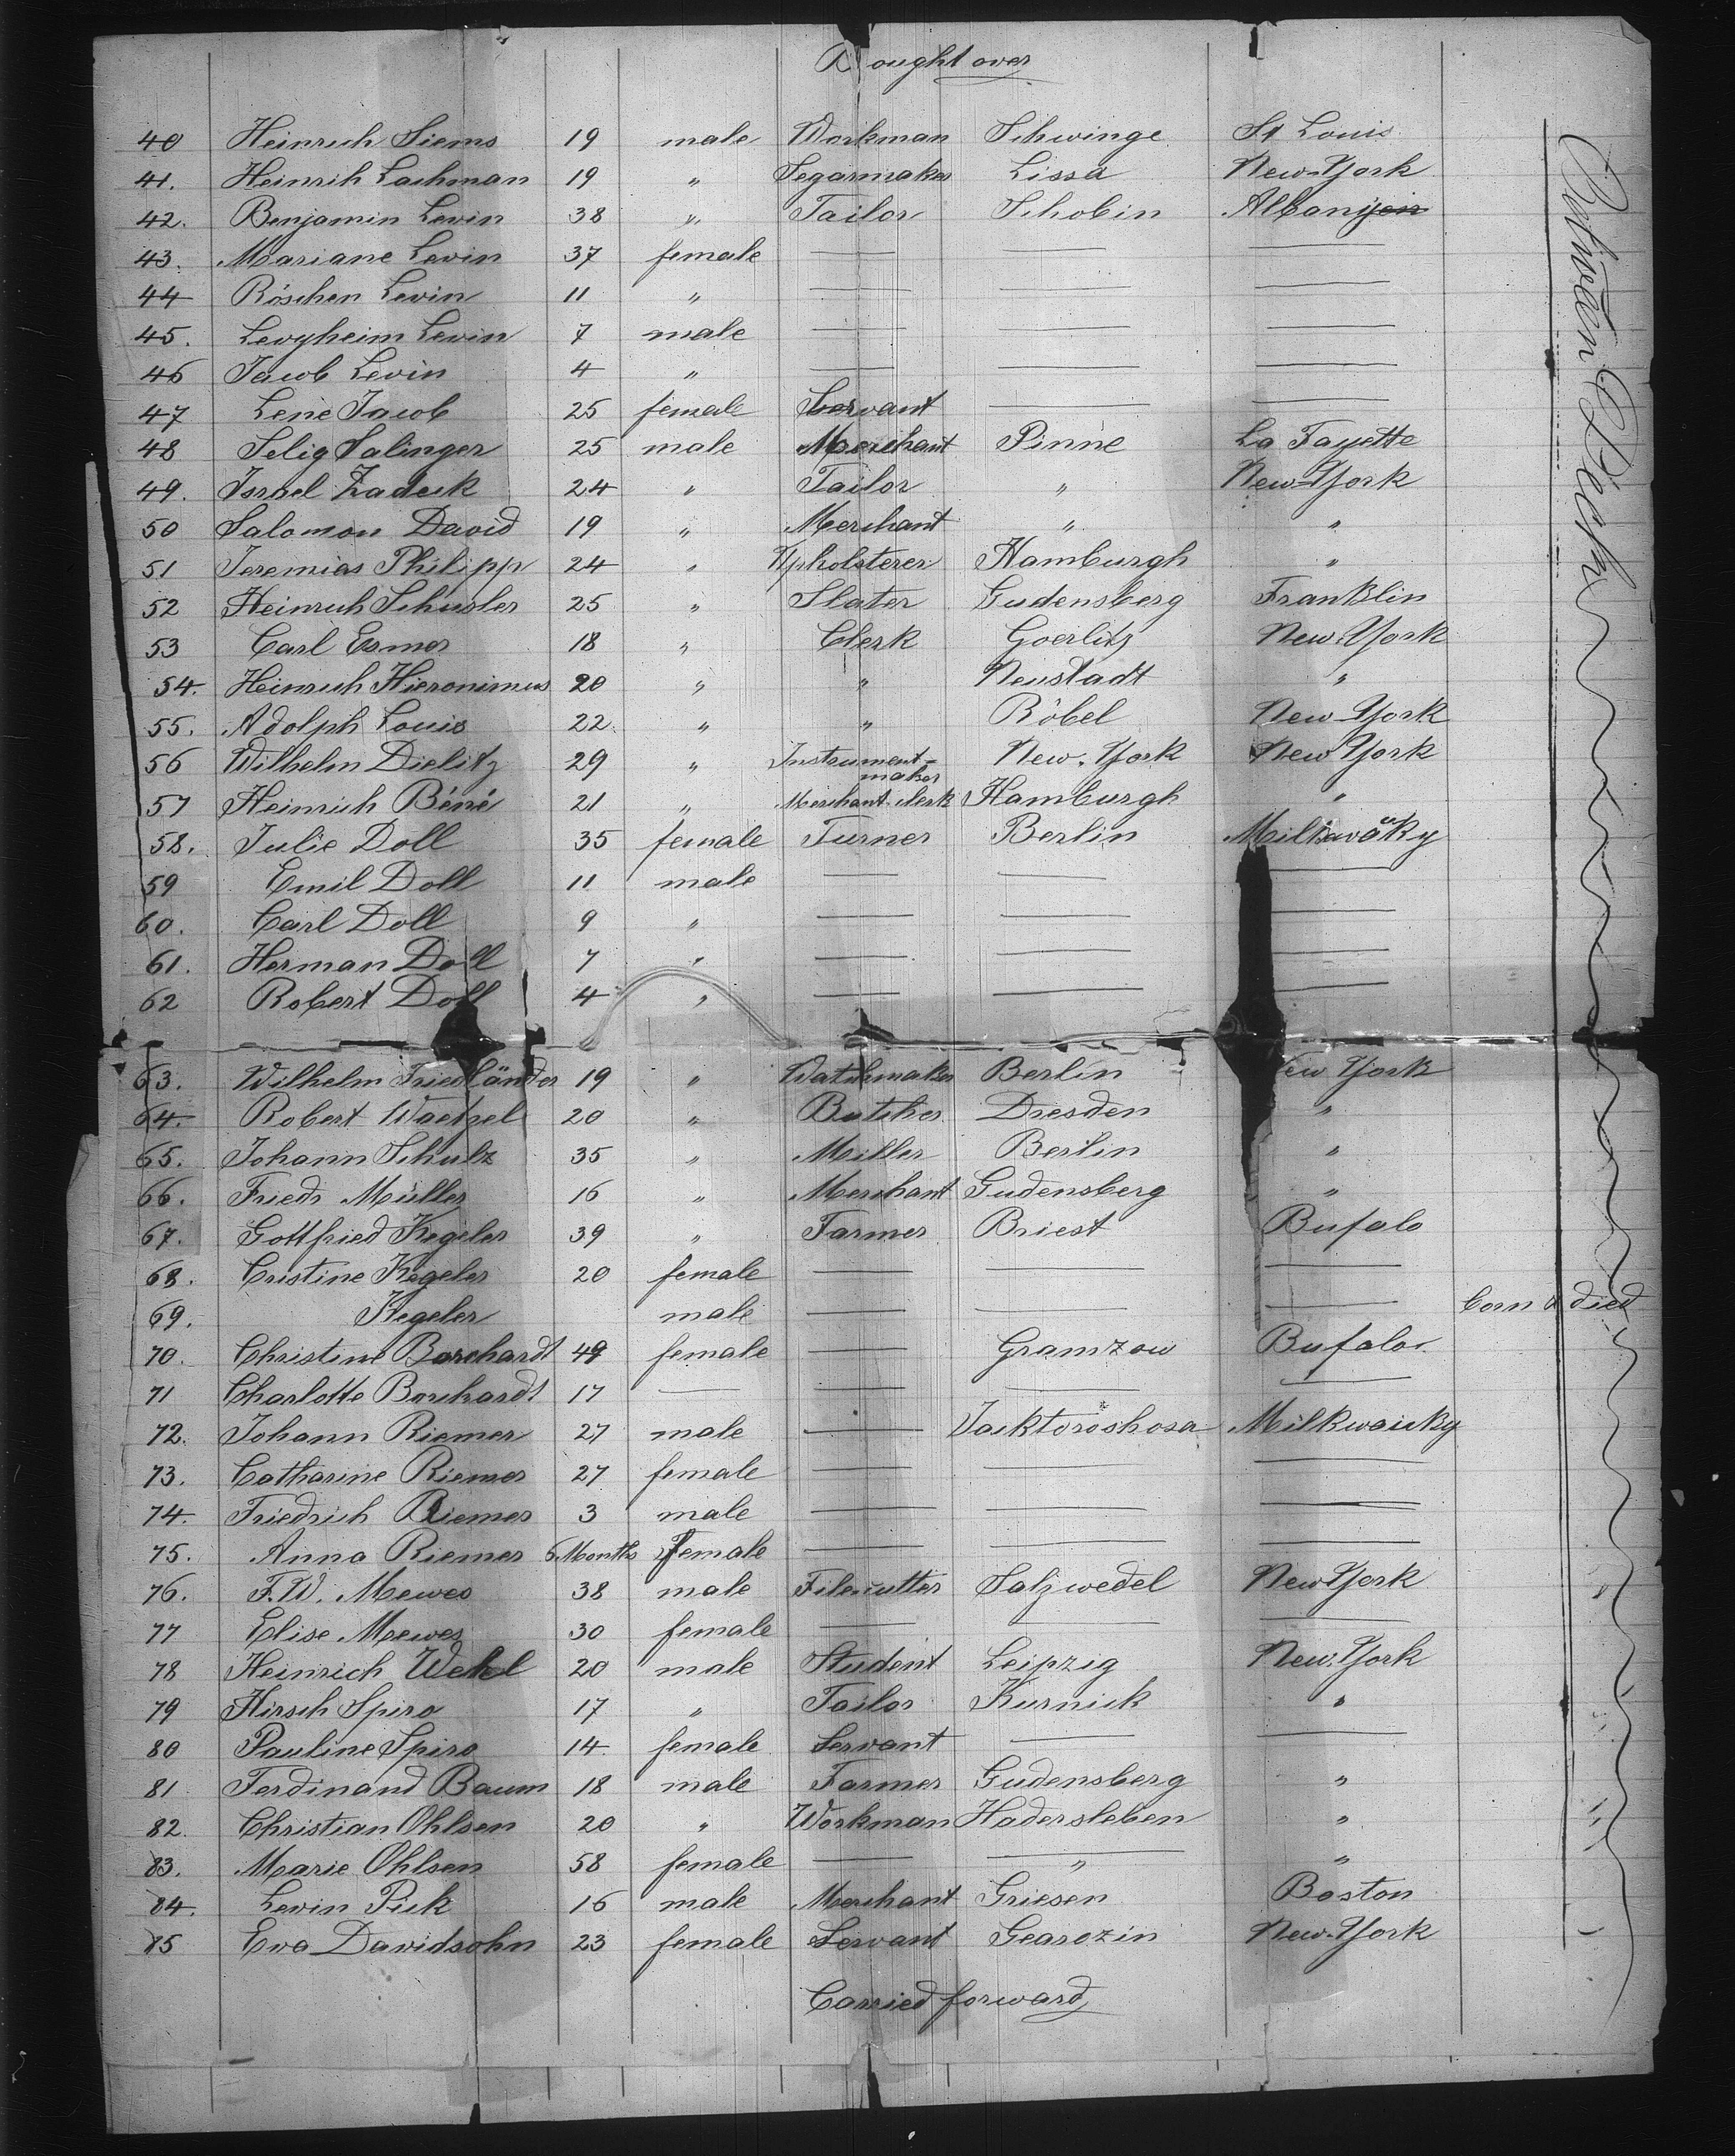 Brought over
40 Heinrich Siems 19 male Workman Schwinge St Louis
41. Heinrih Lachman 19 " Segarmaker Lissa New-York
42. Benjamin Levin 38 " Tailor Schobin Albany
43. Mariane Levin 37 female — — —
44 Röschen Levin 11 " — — —
45. Levyheim Levin 7 male — — —
46 Jacob Levin 4 " — — —
47 Lene Jacob 25 female Servant — —
48 Selig Salinger 25 male Merchant Pinne La Fayette
49. Israel Zadeck 24 " Tailor " New-York
50 Salomon David 19 " Merchant " "
51 Jeremias Philipp 24 " Upholsterer Hamburgh "
52 Heinrich Schusler 25 " Slater Gudensberg Franklin
53 Carl Esmer 18 " Clerk Goerlitz New-York
54. Heinrich Hieronimus 20 " " Neustadt "
55. Adolph Louis 22. " " Röbel New-York
56 Wilhelm Dielitz 29 " Instrument-maker New-York New York
57 Heinrich Béné 21 " Merchant clerk Hamburgh "
58. Julie Doll 35 female Turner Berlin
59 Emil Doll 11 male — — —
60. Carl Doll 9 " — — —
61. Herman Doll 7 " — — —
62 Robert Doll 4 " — — —
63. Wilhelm Friedländer 19 " Watchmaker Berlin New York
64. Robert Waetzel 20 " Butcher Dresden "
65. Johann Schulz 35 " Miller Berlin "
66. Friedr Müller 16 " Merchant Gudensberg "
67. Gottfried Kegeler 39 " Farmer Briest Bufalo
68. Cristine Kegeler 20 female — — —
69. Kegeler male — — — born & died
70. Christine Borchardt 49 female — Gramzow Bufalo
71 Charlotte Borchardt 17 — — — —
72. Johann Riemer 27 male — Jacktoroshosa Milkwaucky
73. Catharine Riemer 27 female — — —
74. Friedrich Riemer 3 male — — —
75. Anna Riemer 6 Months Female — — —
76. F.W. Mewes 38 male Filecutter Salzwedel New York
77 Elise Mewes 30 female — — —
78 Heinrich Wehl 20 male Student Leipzig New-York
79 Hirsch Spiro 17 " Tailor Kurnick "
80 Pauline Spiro 14 female Servant — —
81 Ferdinand Baum 18 male Farmer Gudensberg "
82. Christian Ohlsen 20 " Workman Hadersleben "
83. Marie Ohlsen 58 female — " "
84. Levin Pick 16 male Merchant Griesen Boston
85 Eva Davidsohn 23 female Servant Gearozin New-York
Carried forward
Between Deck